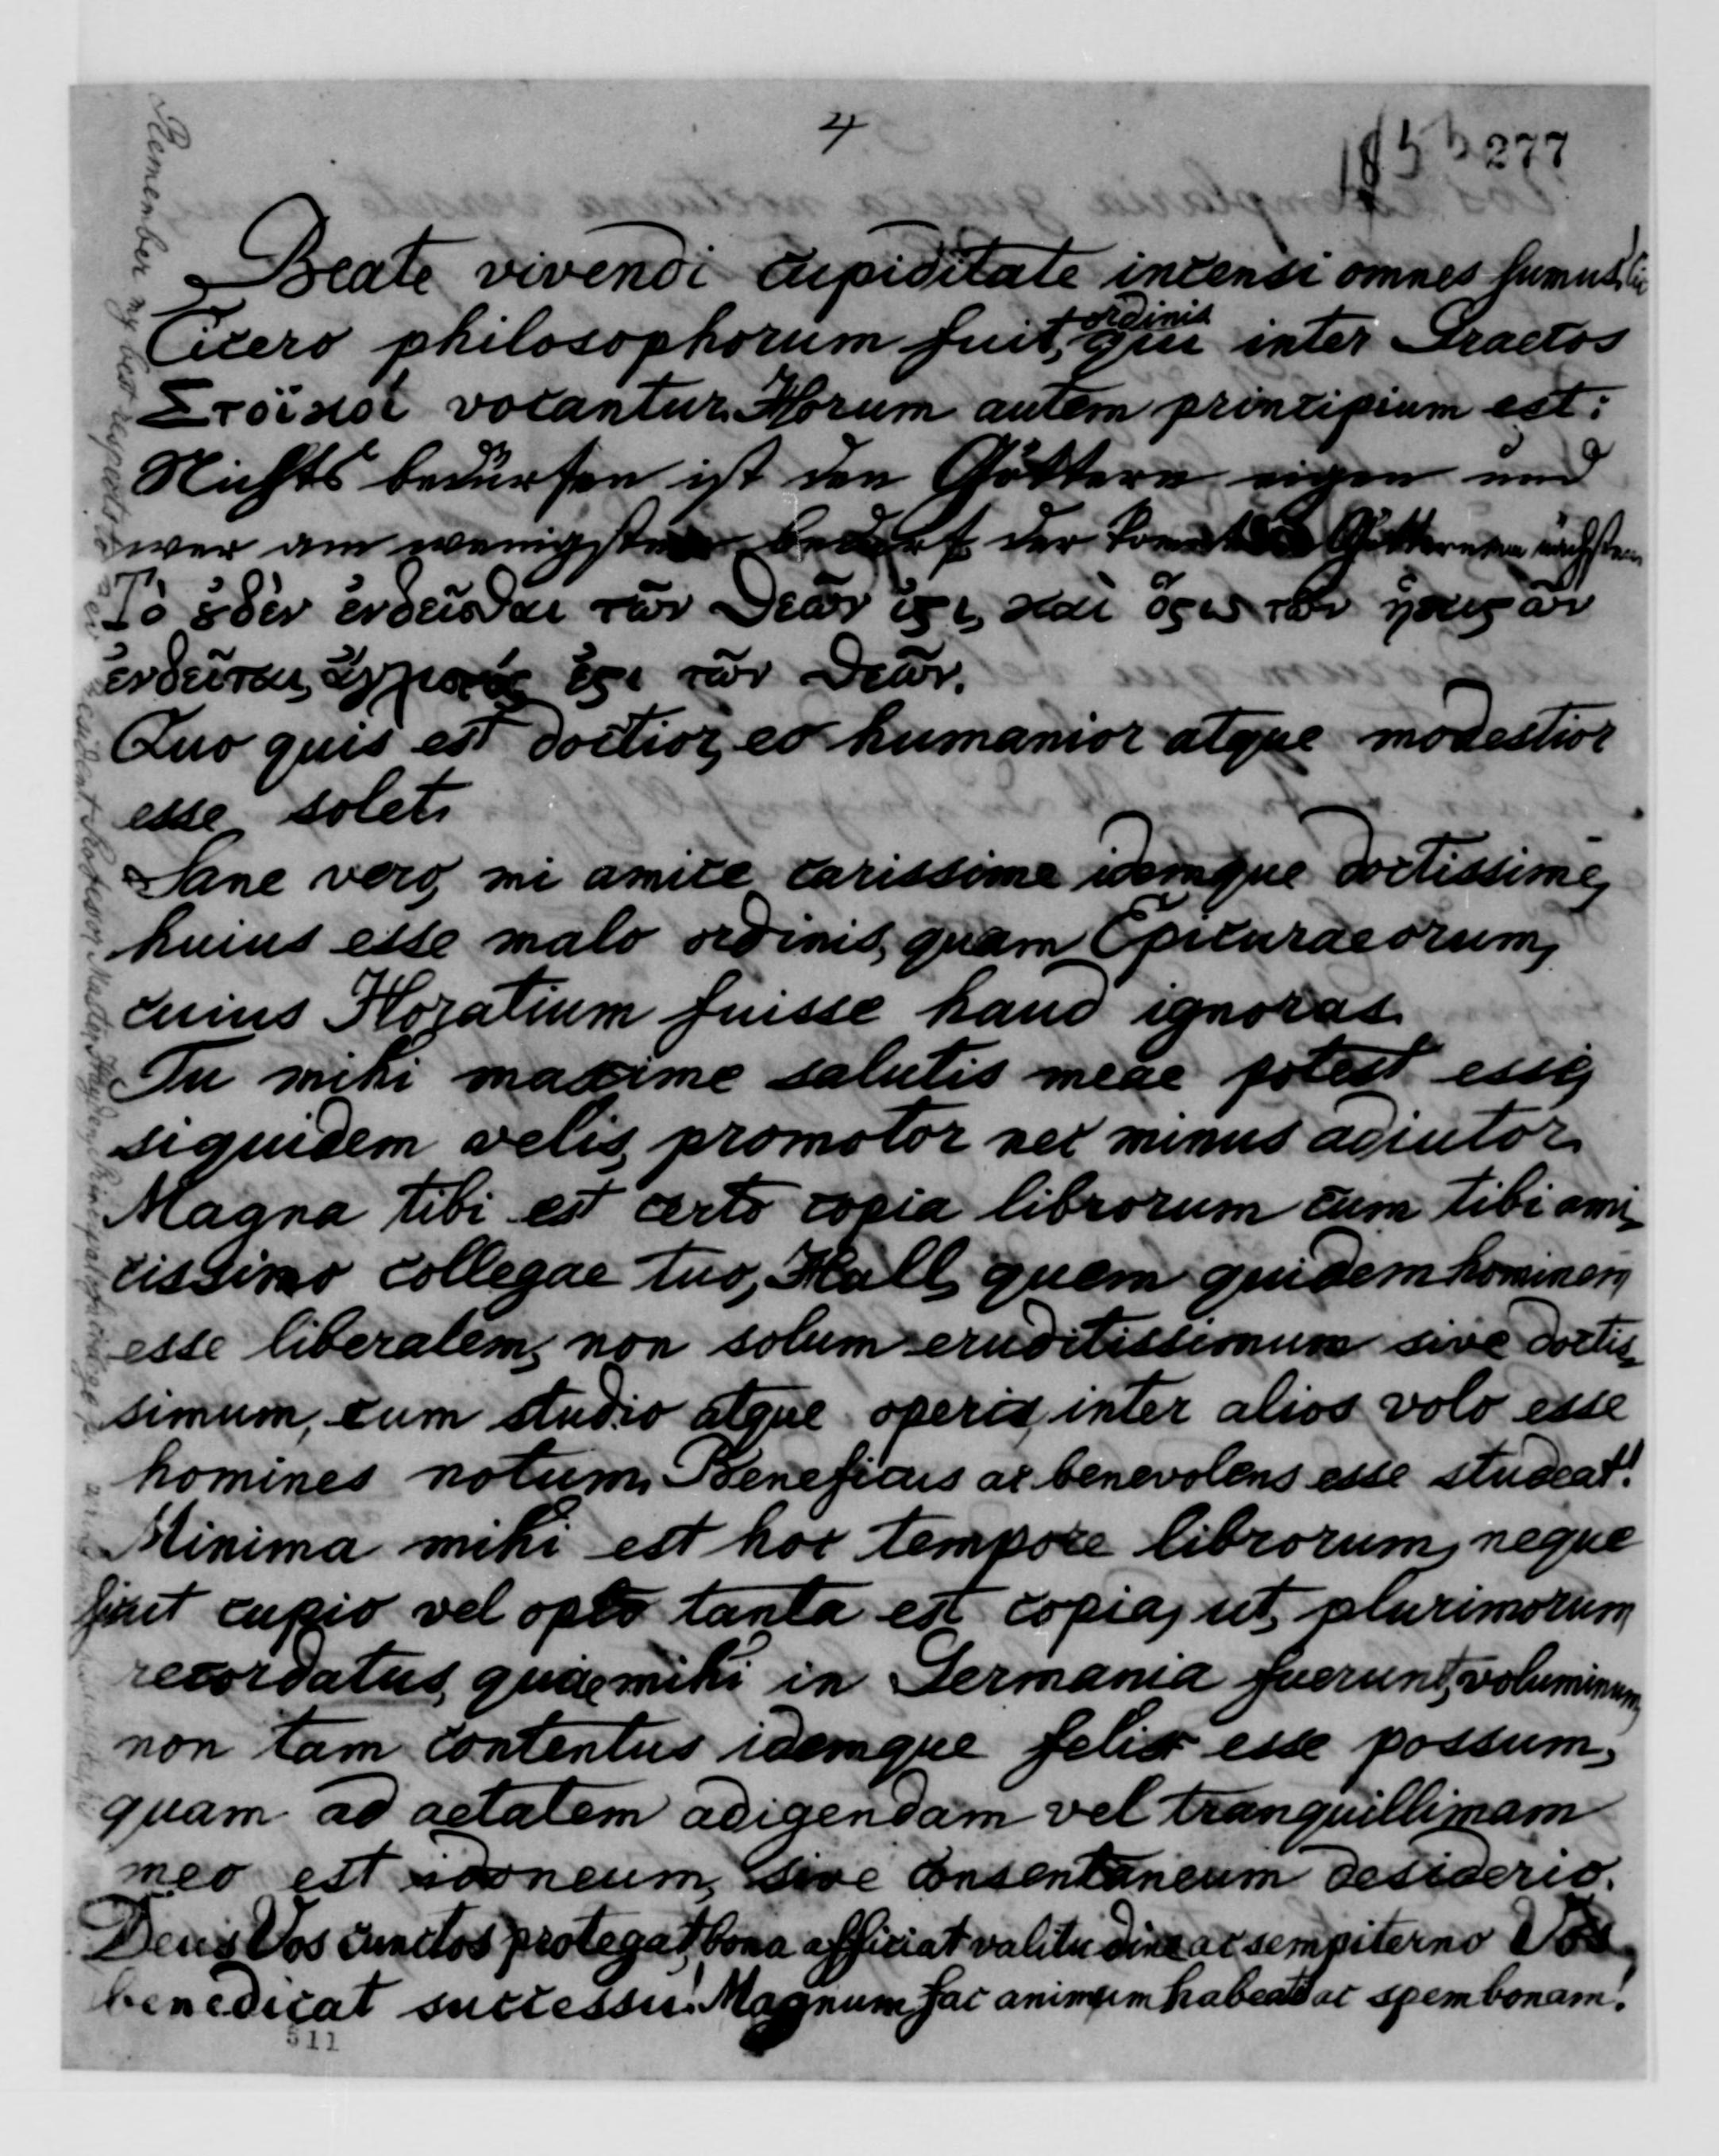 4
1853 277
Beate vivendi cupiditate incensi omnes sumus.
Cicero philosophorum fuit, ordinis qui inter Graecos
Στοϊκοί vocantur. Horum autem principium est:
Nichts bedürfen ist den Göttern eigen und
wer am wenigsten bedarf der kommt den Göttern am nächsten
Τὸ ȣ̓δὲν ἐνδεῖσθαι τῶν θεῶν ἐϛι, καὶ ὅϛις τῶν ἥκιϛ' ἂν
ἐνδεῖται, ἔγγιϛος ἐϛι τῶν θεῶν.
Quo quis est doctior, eo humanior atque modestior
esse solet.
Sane vero, mi amice carissime idemque doctissime,
huius esse malo ordinis, quam Epicuraeorum,
cuius Horatium fuisse haud ignoras.
Tu mihi maxime salutis meae potest esse,
siquidem velis, promotor nec minus adiutor.
Magna tibi est certo copia librorum cum tibi ami-
cissimo collegae tuo, Hall, quem quidem hominem
esse liberalem, non solum eruditissimum sive doctis-
simum, cum studio atque operis, inter alios volo esse
homines notum. Beneficus ac benevolens esse studeat!
Minima mihi est hoc tempore librorum, neque
sicut cupio vel opto tanta est copia, ut, plurimorum
recordatus, quae mihi in Germania fuerunt, voluminum,
non tam contentus idemque felix esse possum,
quam ad aetatem adigendam vel tranquillimam
meo est idoneum, sive consentaneum desiderio.
Deus Vos cunctos protegat, bona afficiat valitudine ac sempiterno Vos
benedicat successu! Magnum fac animum habeas ac spem bonam!
511
Remember my best respects